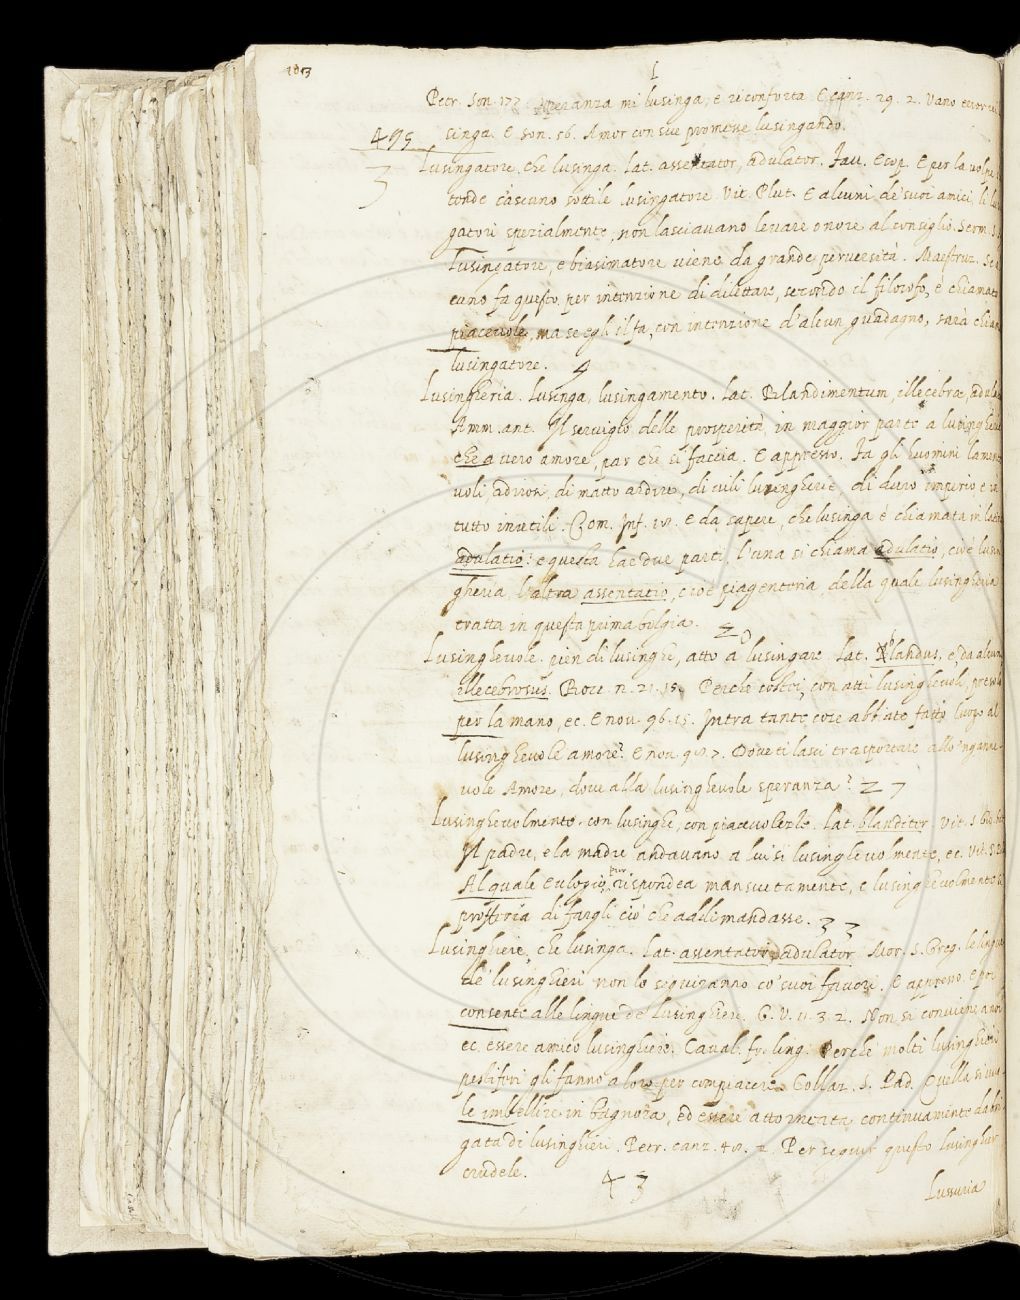 L
Petr. Son. 177. Speranza mi lusinga, e riconforta E canz. 29. 2. Vano error
singa. E son. 56. Amor con sue promesse lusingando.
495
3
Lusingatore, che lusinga. Lat. assentator, adulator. Fav. Esop. E per la volpe
tende ciascuno sottile lusingatore. Vit. Plut. E alcuni de' suoi amici, li
gatori spezialmente, non lasciavano levare onore al consiglio. Serm. S.
Lusingatore, e biasimatore viene da grande perversità. Maestruz. Se
cuno fa questo per intenzione di dilettare, secondo il filosofo, è chiamato
piacevole, ma se egli il fa, con intenzione d'alcun guadagno, sarà
lusingatore. 4
Lusingheria. Lusinga, lusingamento. Lat. Blandimentum, illecebrae,
Amm. ant. Il servigio delle prosperità in maggior parte a
che a vero amore, par che si faccia. E appresso. Fa gli huomini
di matto ardire, di vili lusingherie, di duro imperio e in
tutto inutili. Com. Inf. 18. E da sapere, che lusinga è chiamata in
adulatio: e questa hae due parti, l'una si chiama adulatio, cioè lusin
gheria, l'altra assentatio, cioè piagenteria, della quale lusingheria
tratta in questa prima bolgia. 20
Lusinghevole. pien di lusinghe, atto a lusingare. Lat. blandus, e da alcun
illecebrosus. Bocc. n. 21. 15. Perché costei, con atti lusinghevoli, presolo
per la mano, ec. E nov. 96. 15. Intra tante cose abbiate fatto luogo al
lusinghevole amore? E nov. 98. 7. Dove ti lasci trasportare allo 'nganne-
vole Amore, dove alla lusinghevole speranza? 27
Lusinghevolmente. con lusinghe, con piacevolezze. Lat. blanditer. Vit. S.
Il padre, e la madre andavano a lui sì lusinghevolmente, ec. Vit. S.
Al quale Eulogio pur rispondea mansuetamente, e lusinghevolmente
profferia di fargli ciò che addomandasse. 33
Lusinghiere, che lusinga. Lat. assentator, adulator. Mor. S. Greg. le lingue
de' lusinghieri non lo seguiranno co' suoi favori. E appresso. E
consente alle lingue de' Lusinghieri. G. V. 11. 3. 2. Non si conviene a
ec. essere amico lusinghiere. Caval. fr. ling. Perché molti lusinghieri
pestiferi gli fanno a loro per compiacere. Collaz. S. Pad. Quella si
le imbellire in bagnora, ed essere attorneata continuamente da bri
gata di lusinghieri. Petr. canz. 48. 2. Per seguir questo lusinghier
crudele. 43
Lussuria